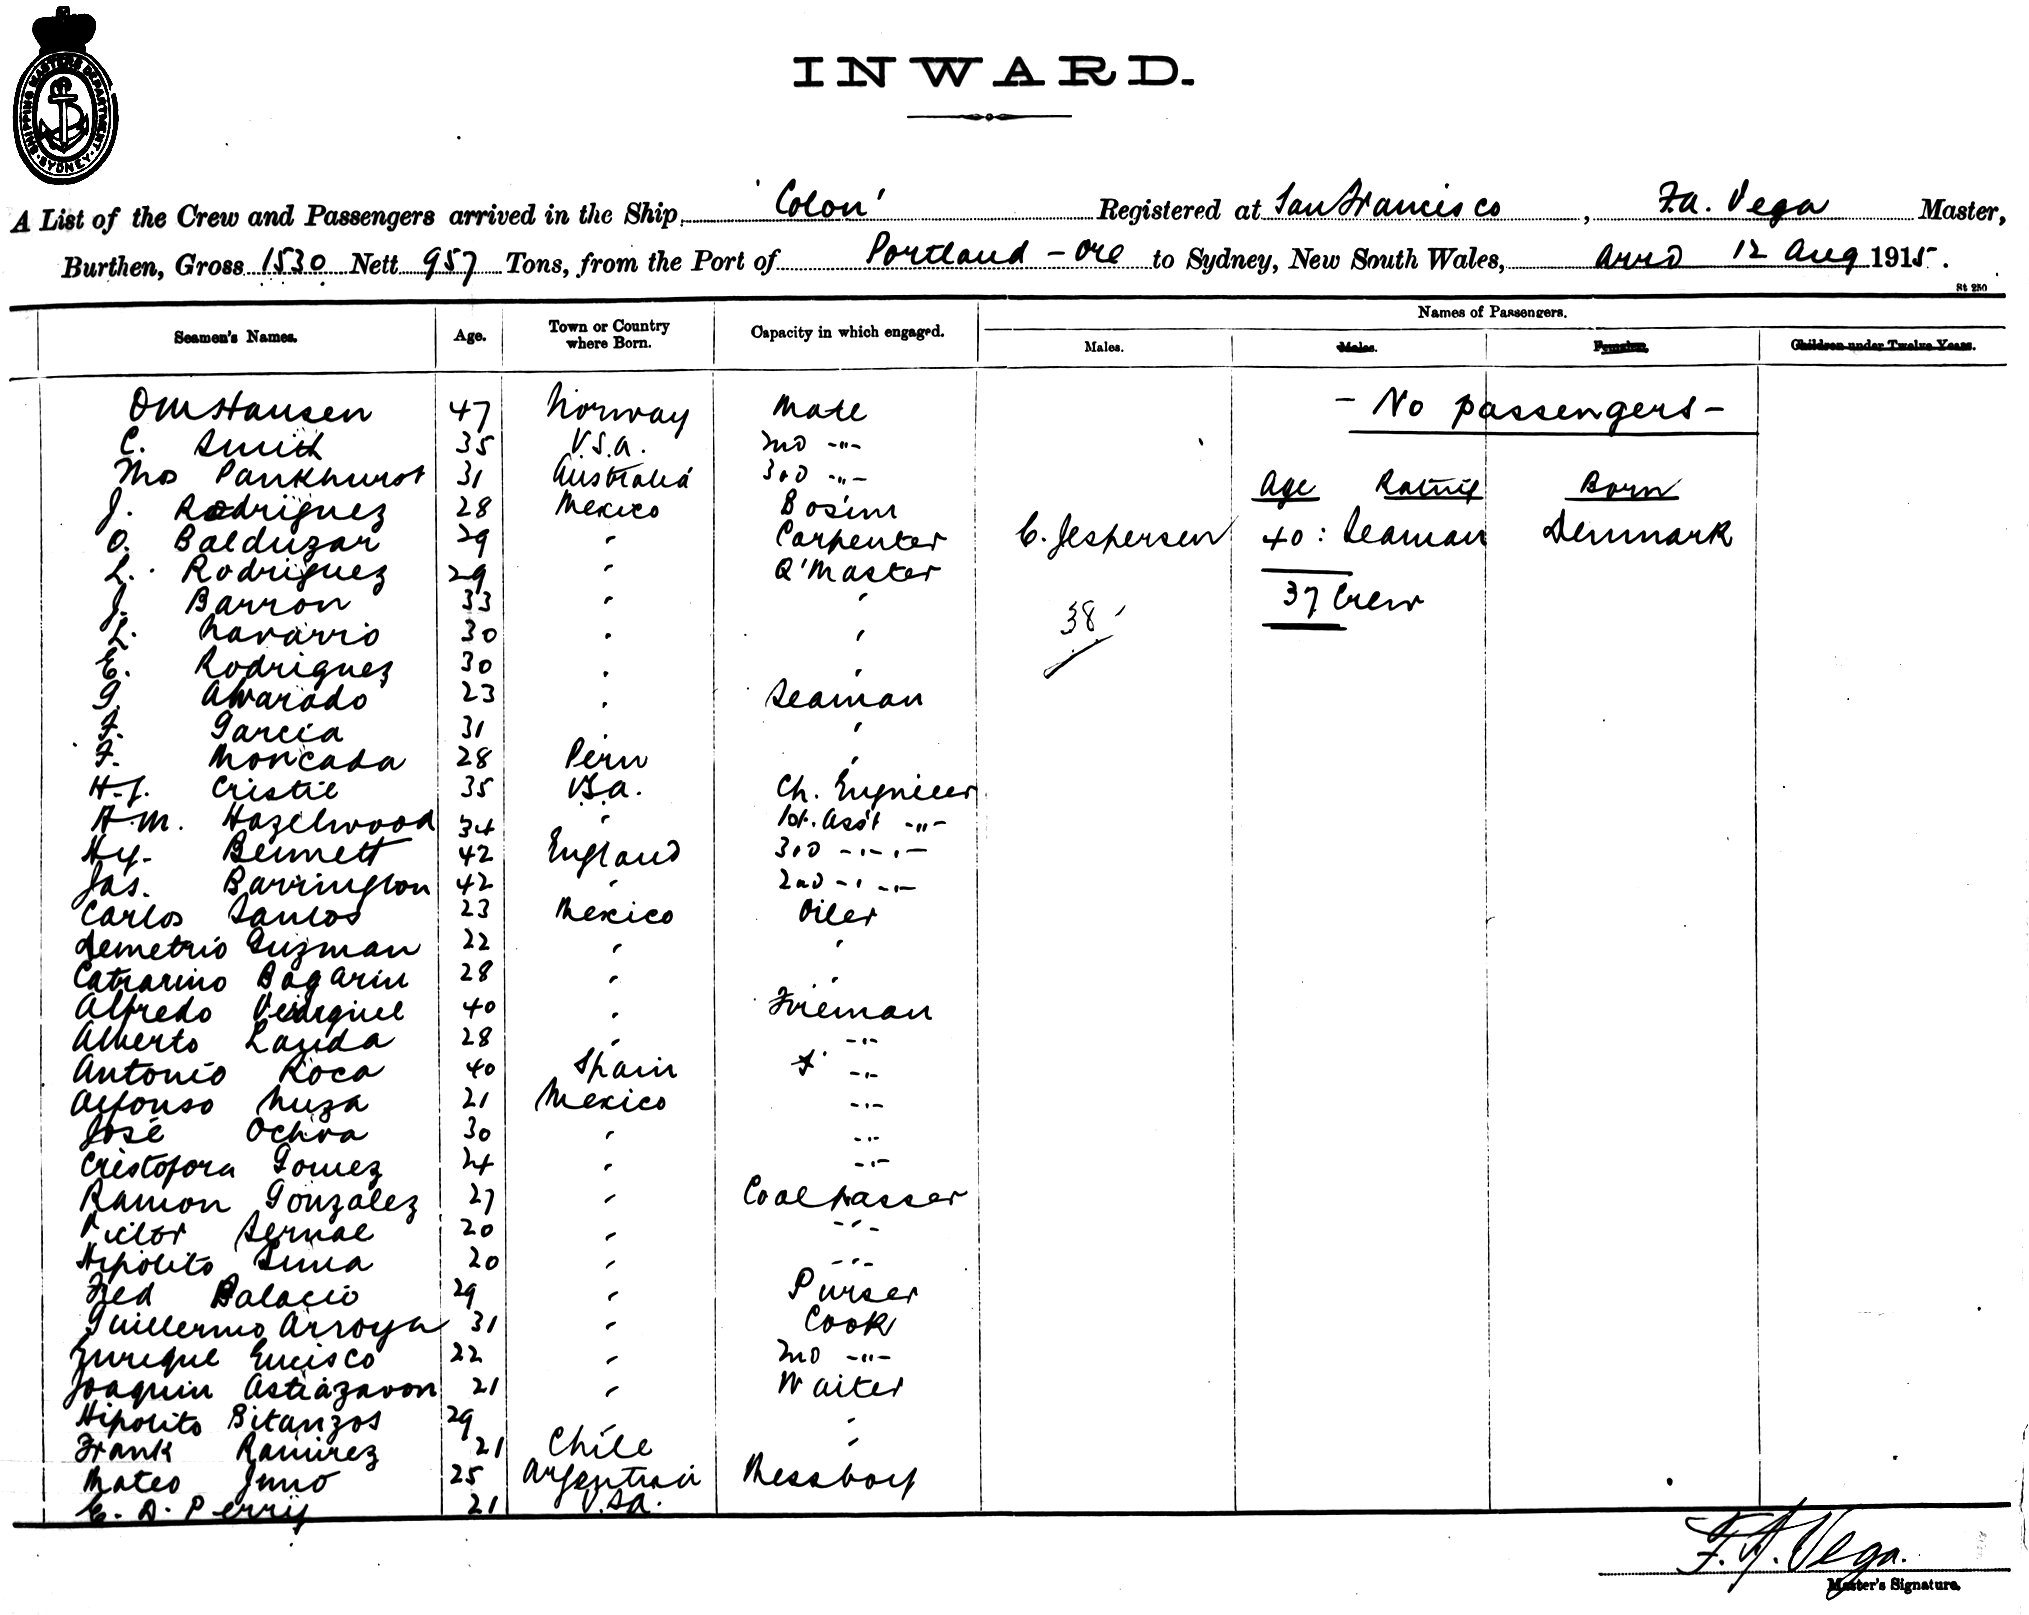 SHIPPING MASTERS DEPARTMENT · SYDNEY ·
INWARD.
A List of the Crew and Passengers arrived in the Ship, 'Colon' Registered at San Francisco, F.A. Vega Master,
Burthen, Gross 1530 Nett 957 Tons, from the Port of Portland - Ore to Sydney, New South Wales, arrd 12 Aug 1915.
St 250
Seamen's Names. Age. Town or Country where Born. Capacity in which engaged. Names of Passengers.
Males. Males. Females. Children under Twelve Years.
O M Hansen 47 Norway Mate - No passengers -
C. Smith 35 U.S.A. 2nd -"-
Thos Pankhurst 31 Australia 3rd -"- Age Rating Born
J. Rodriguez 28 Mexico Bos'un
O. Balduzar 29 " Carpenter C. Jespersen 40 : Seaman Denmark
L. Rodriguez 29 " Q'Master
J. Barron 33 " " 38 37 Crew
L. Navarro 30 " "
E. Rodriguez 30 " "
G. Alvarado 23 " Seaman
F. Garcia 31 " "
F. Moncada 28 Peru "
H.J. Cristie 35 U.S.A. Ch. Engineer
A.M. Hazelwood 34 " 1st. Ass't -"-
Hy. Bennett 42 England 3rd -"-"-
Jas. Barrington 42 " 2nd -"-"-
Carlos Santos 23 Mexico Oiler
Demetrio Guzman 22 " "
Catrarino Bagarin 28 " "
Alfredo 40 " Fireman
Alberto 28 " -"-
Antonio Roca 40 Spain -"-
Alfonso Muza 21 Mexico -"-
José Ochoa 30 " -"-
Cristofora Gomez 24 " -"-
Ramon Gonzalez 27 " Coalpasser
Victor Bernal 20 " -"-
Hipolito Luna 20 " -"-
Fred Palacio 29 " Purser
Guillermo Arroya 31 " Cook
Enrique Encisco 22 " 2nd -"-
Joaquin Astiazavon 21 " Waiter
Hipolito Bitanzos 29 "
Frank Ramirez 21 Chile "
Mateo Juno 25 Argentina Messboy
E. D. Perry 21 U.S.A.
F. A. Vega.
Master's Signature.